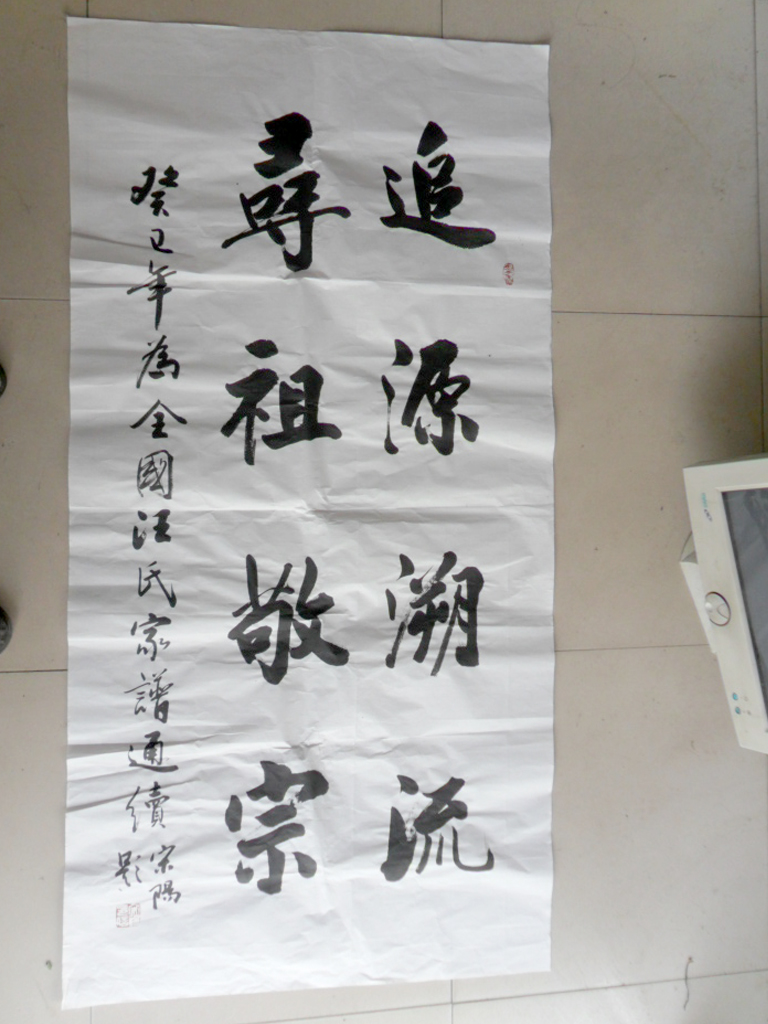 追源溯流
尋祖敬宗
癸巳年為全國汪氏家譜通續
宗陽
影